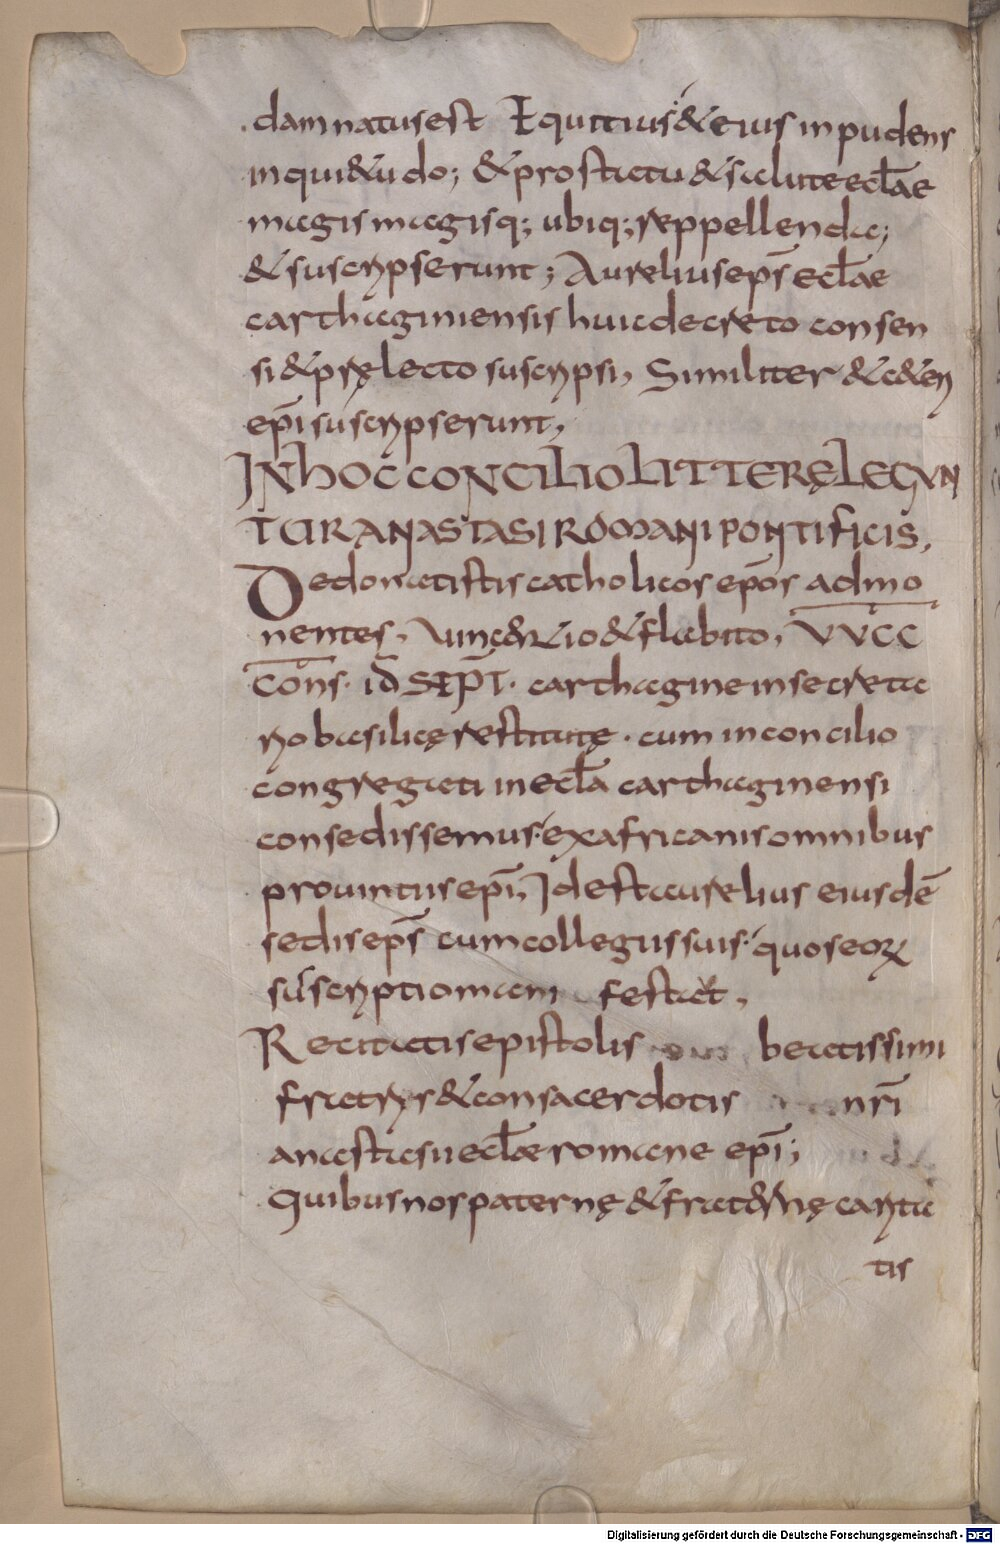 damnatus est Equitius & eius inpudens
inqui&udo; & pro statu & salute eclae
magis magisq; ubiq; reppellenda;
& suscripserunt; Aurelius eps eclae
carthaginiensis huic decreto consen
si & pręlecto suscripsi, Similiter & c&eri
epi suscripserunt,
IN HOC CONCILIO LITTERĘ LEGUN
TUR ANASTASI ROMANI PONTIFICIS,
De donatistis catholicos epos admo
nentes,
VVCC
Cons. id SEPT. carthagine in secreta
rio basilicę restitutę. cum in concilio
congregati in ecla carthaginensi
consedissemus. ex africanis omnibus
prouintiis epi, Id est aurelius eiusdē
sedis eps cum collegiis suis. quos eorꝝ
suscriptio mani festat,
Recitatis epistolis beatissimi
fratris & consacerdotis nri
anastasii eclae romane epi;
Quibus nos paternę & fraternę carita
tis
Digitalisierung gefördert durch die Deutsche Forschungsgemeinschaft - DFG